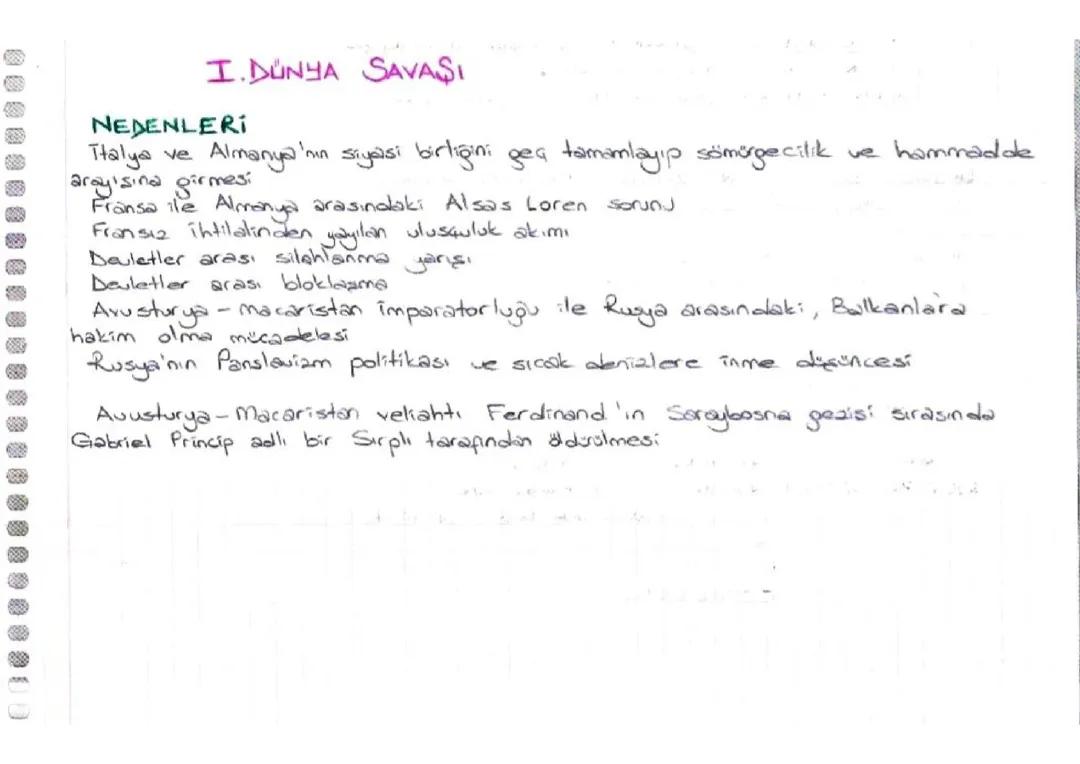 I. DÜNYA SAVAŞI
NEDENLERİ
İtalya ve Almanya'nın siyasi birliğini geç tamamlayıp sömürgecilik ve hammadde
arayışına girmesi
Fransa ile Almanya arasındaki Alsas Loren sorunu
Fransız ihtilalinden yayılan ulusçuluk akımı
Devletler arası silahlanma yarışı
Devletler arası bloklaşma
Avusturya - Macaristan imparatorluğu ile Rusya arasındaki, Balkanlara
hakim olma mücadelesi
Rusya'nın Panslavizm politikası ve sıcak denizlere inme düşüncesi
Avusturya - Macaristan veliahtı Ferdinand'ın Saraybosna gezisi sırasında
Gabriel Princip adlı bir Sırplı tarafından öldürülmesi